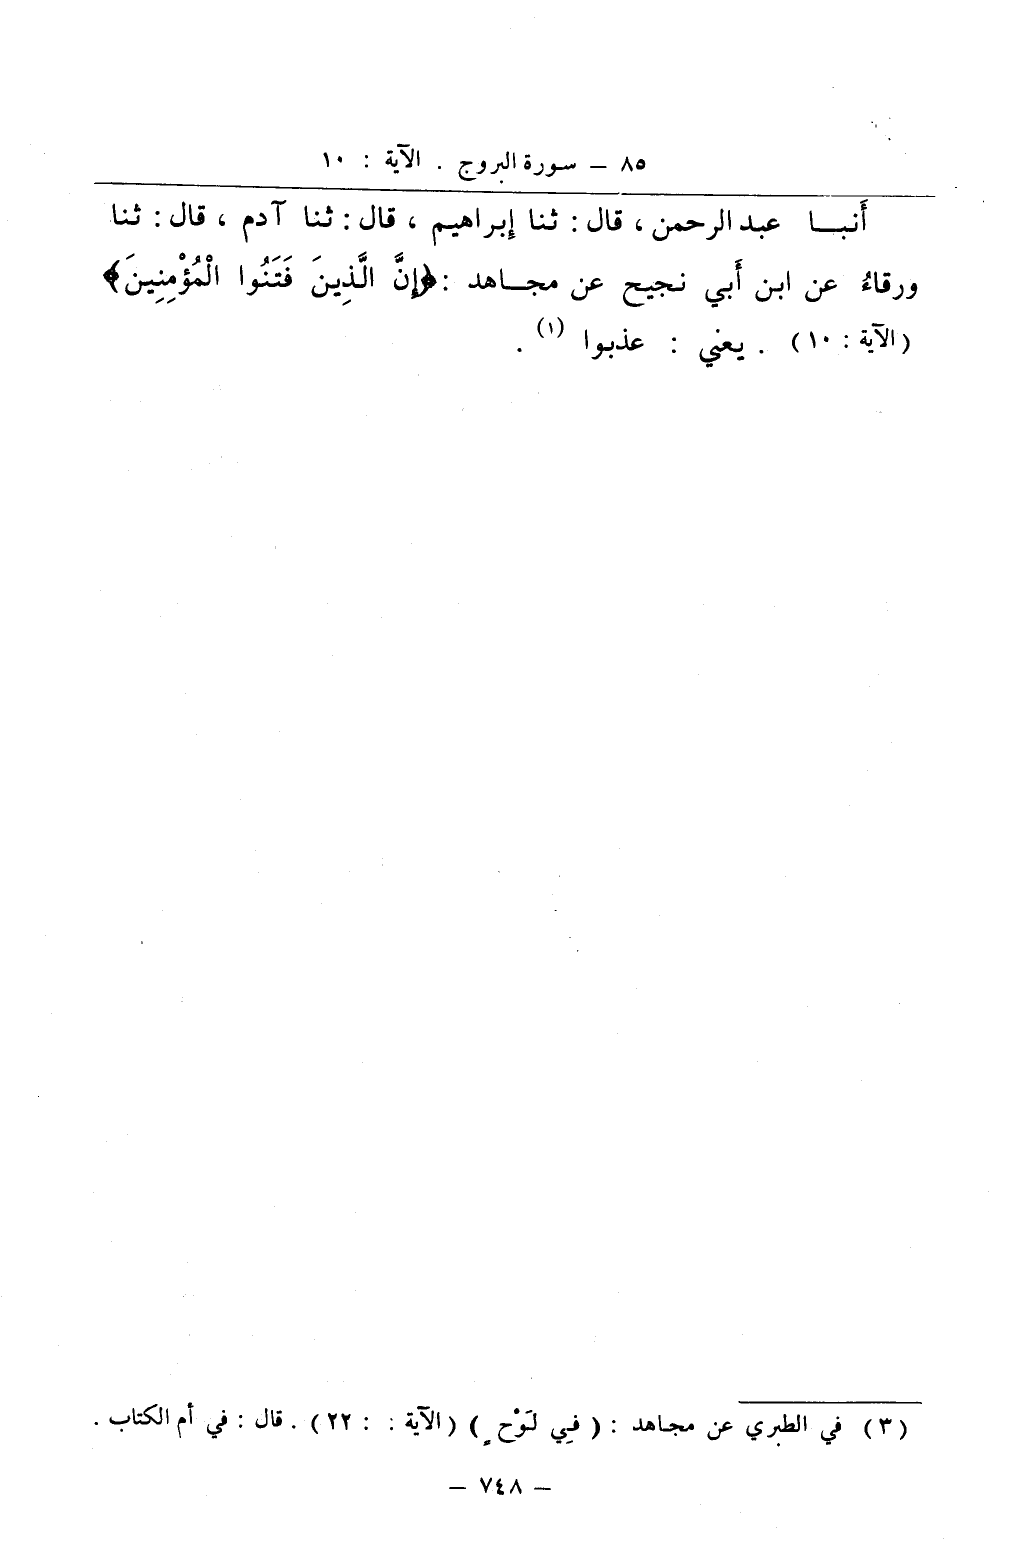 ٨٥ – سورة البروج . الآية : ١٠
أَنبـــا عبد الرحمن ، قال : ثنا إبراهيم ، قال : ثنا آدم ، قال : ثنا
ورقاءُ عن ابن أَبي نجيح عن مجـــاهد : ﴿إِنَّ الَّذِينَ فَتَنُوا الْمُؤْمِنِينَ﴾
(الآية : ١٠) . يعني : عذبوا (١) .
(٣) في الطبري عن مجاهد : ( فِي لَوْحٍ ) (الآية : : ٢٢) . قال : في أم الكتاب .
– ٧٤٨ –